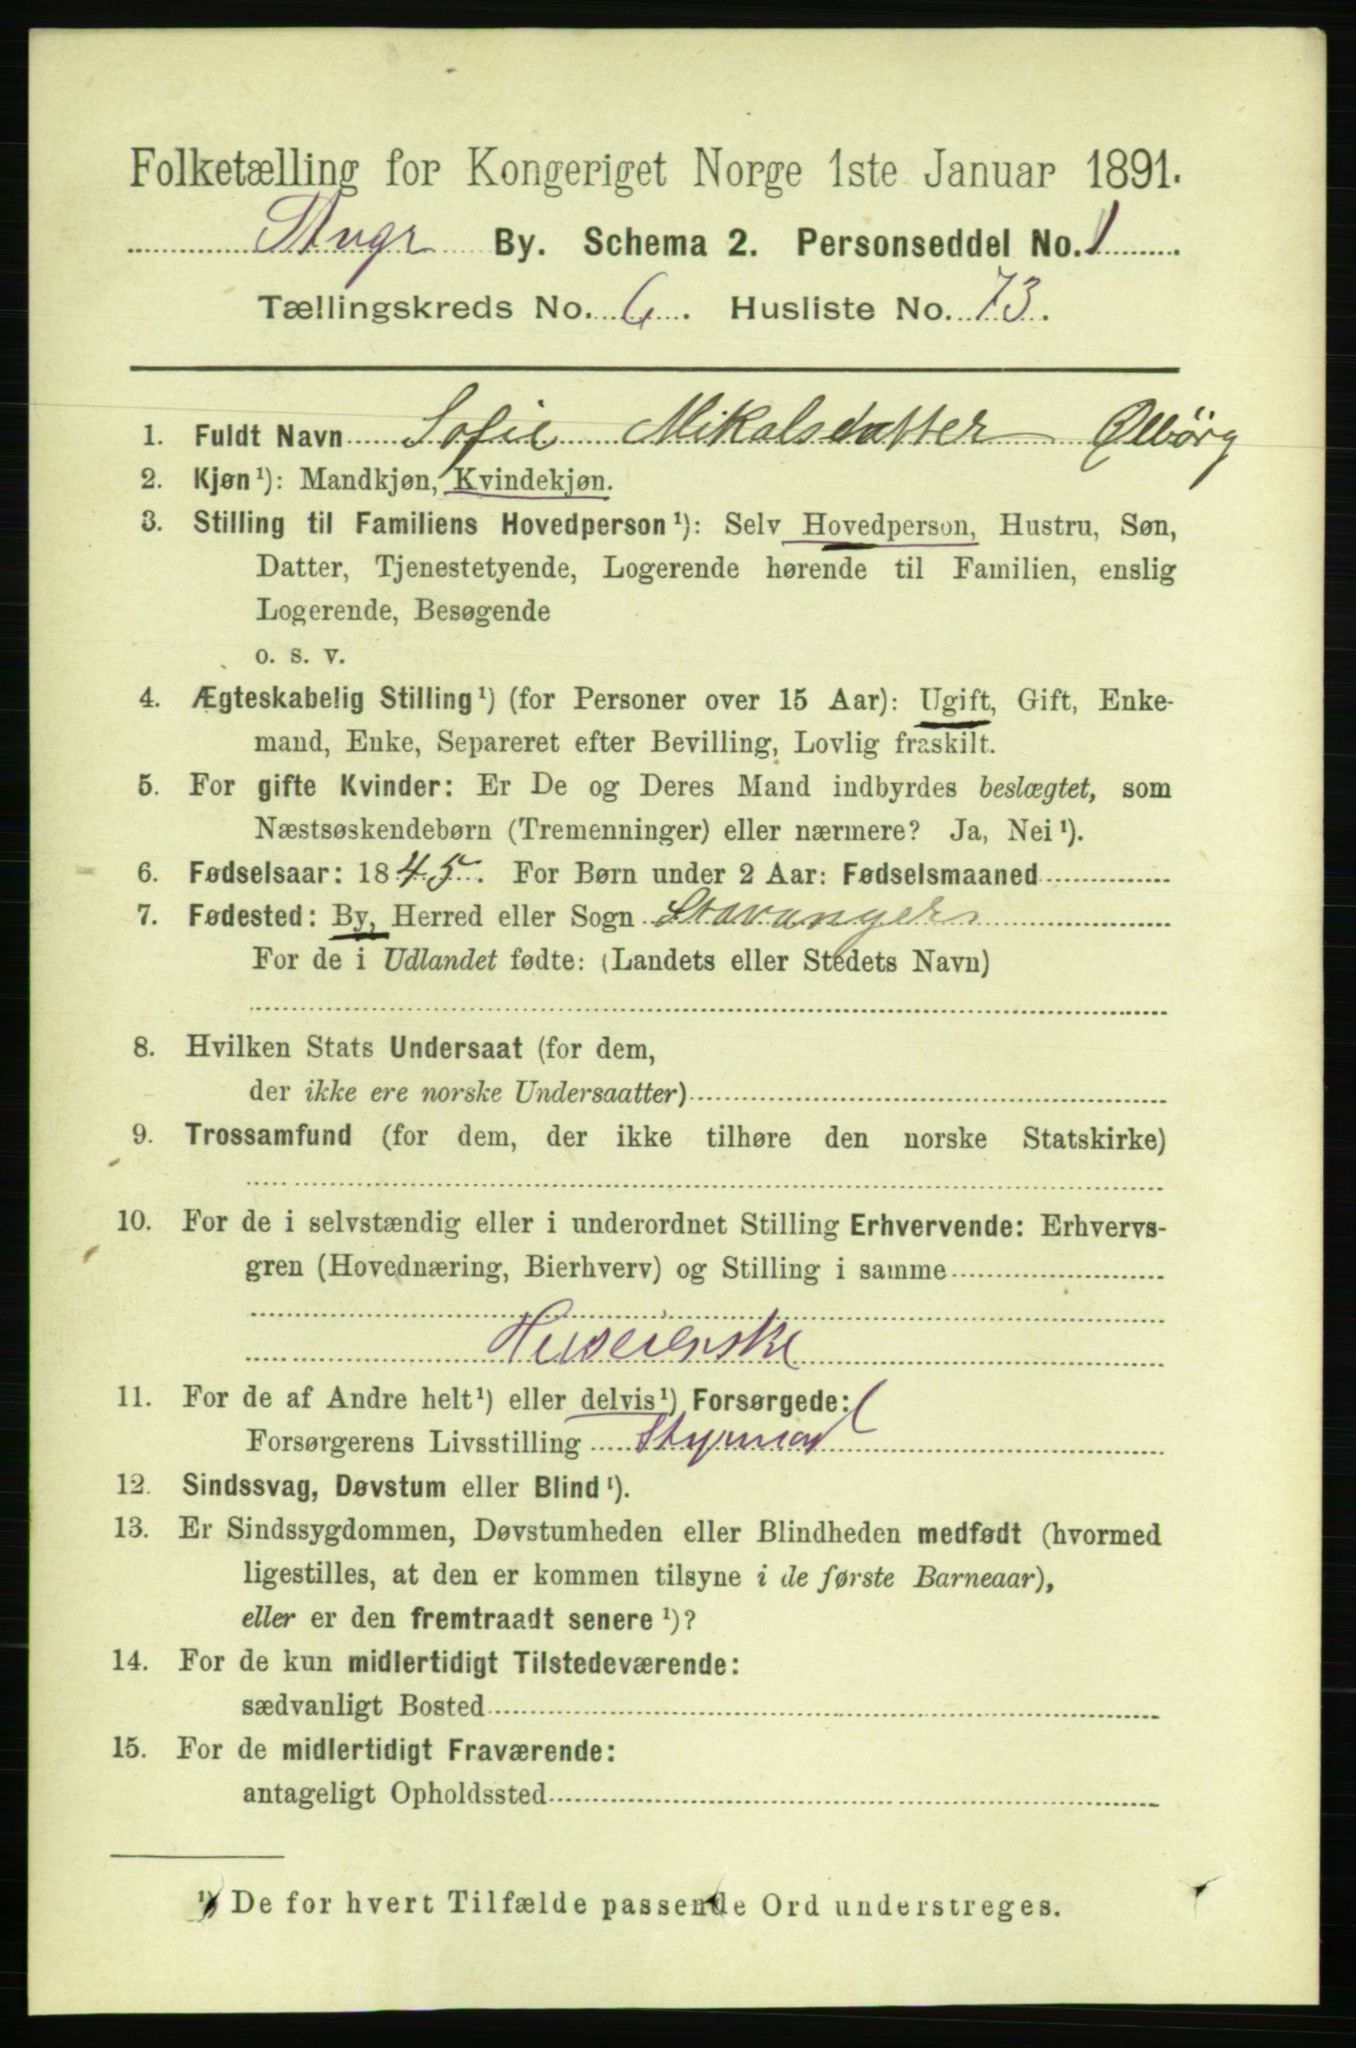 Folketælling for Kongeriget Norge 1ste Januar 1891.
Stvgr By. Schema 2. Personseddel No. 1
Tællingskreds No. 6. Husliste No. 73.
1. Fuldt Navn Sofie Mikalsdatter Ølbörg
2. Kjøn¹): Mandkjøn, Kvindekjøn.
3. Stilling til Familiens Hovedperson¹): Selv Hovedperson, Hustru, Søn,
Datter, Tjenestetyende, Logerende hørende til Familien, enslig
Logerende, Besøgende
o. s. v.
4. Ægteskabelig Stilling¹) (for Personer over 15 Aar): Ugift, Gift, Enke-
mand, Enke, Separeret efter Bevilling, Lovlig fraskilt.
5. For gifte Kvinder: Er De og Deres Mand indbyrdes beslægtet, som
Næstsøskendebørn (Tremenninger) eller nærmere? Ja, Nei¹).
6. Fødselsaar: 1845. For Børn under 2 Aar: Fødselsmaaned
7. Fødested: By, Herred eller Sogn Stavanger
For de i Udlandet fødte: (Landets eller Stedets Navn)
8. Hvilken Stats Undersaat (for dem,
der ikke ere norske Undersaatter)
9. Trossamfund (for dem, der ikke tilhøre den norske Statskirke)
10. For de i selvstændig eller i underordnet Stilling Erhvervende: Erhvervs-
gren (Hovednæring, Bierhverv) og Stilling i samme
Huseierske
11. For de af Andre helt¹) eller delvis¹) Forsørgede:
Forsørgerens Livsstilling
12. Sindssvag, Døvstum eller Blind¹).
13. Er Sindssygdommen, Døvstumheden eller Blindheden medfødt (hvormed
ligestilles, at den er kommen tilsyne i de første Barneaar),
eller er den fremtraadt senere¹)?
14. For de kun midlertidigt Tilstedeværende:
sædvanligt Bosted
15. For de midlertidigt Fraværende:
antageligt Opholdssted
¹) De for hvert Tilfælde passende Ord understreges.